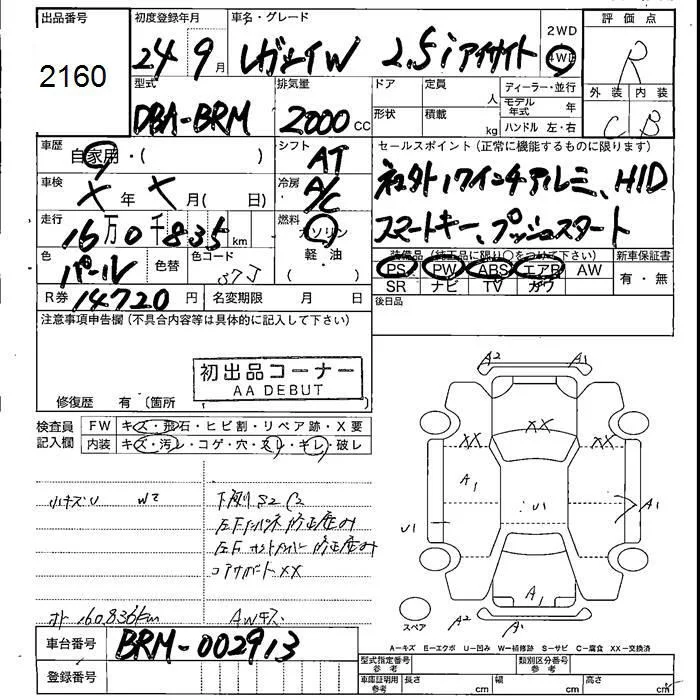 出品番号 初度登録年月 車名・グレード 評価点
2160
24 9月 レガシィW 2.5i アイサイト 2WD 4WD
R
型式 排気量 ドア 定員 人 ディーラー・並行 外装 内装
DBA-BRM 2000CC 形状 積載 kg モデル年式 年 C B
ハンドル 左・右
車歴 自家用・( ) シフト AT セールスポイント (正常に機能するものに限ります)
車検 X年 X月( 日) 冷房 A/C 社外17インチアルミ、HID
走行 16万0千835km 燃料 ガソリン スマートキー、プッシュスタート
軽・油
・( )
色 パール 色替 色コード 37J 装備品 (純正品に限り○をつけて下さい) 新車保証書
PS PW ABS エアB AW 有・無
SR ナビ TV ガワ
R券 14720円 名変期限 月 日 後日品
注意事項申告欄 (不具合内容等は具体的に記入して下さい)
初出品コーナー
AA DEBUT
修復歴 有 〔箇所
検査員記入欄 FW キズ・飛石・ヒビ割・リペア跡・X要
内装 キズ・汚レ・コゲ・穴・スレ・キレ・破レ
A2 A1
XX
XX XX
A1
U1 U1 A1
A1
A2 A1
スペア
小キズU W2 下廻りS2 C2
修正済み
修正済み
コアサポートXX
160,836km AWキズ
A−キズ E−エクボ U−凹み W−補修跡 S−サビ C−腐食 XX−交換済
車台番号 BRM-002913
登録番号
型式指定番号 参考 類別区分番号 参考
車庫証明用 参考 長さ cm 幅 cm 高さ cm